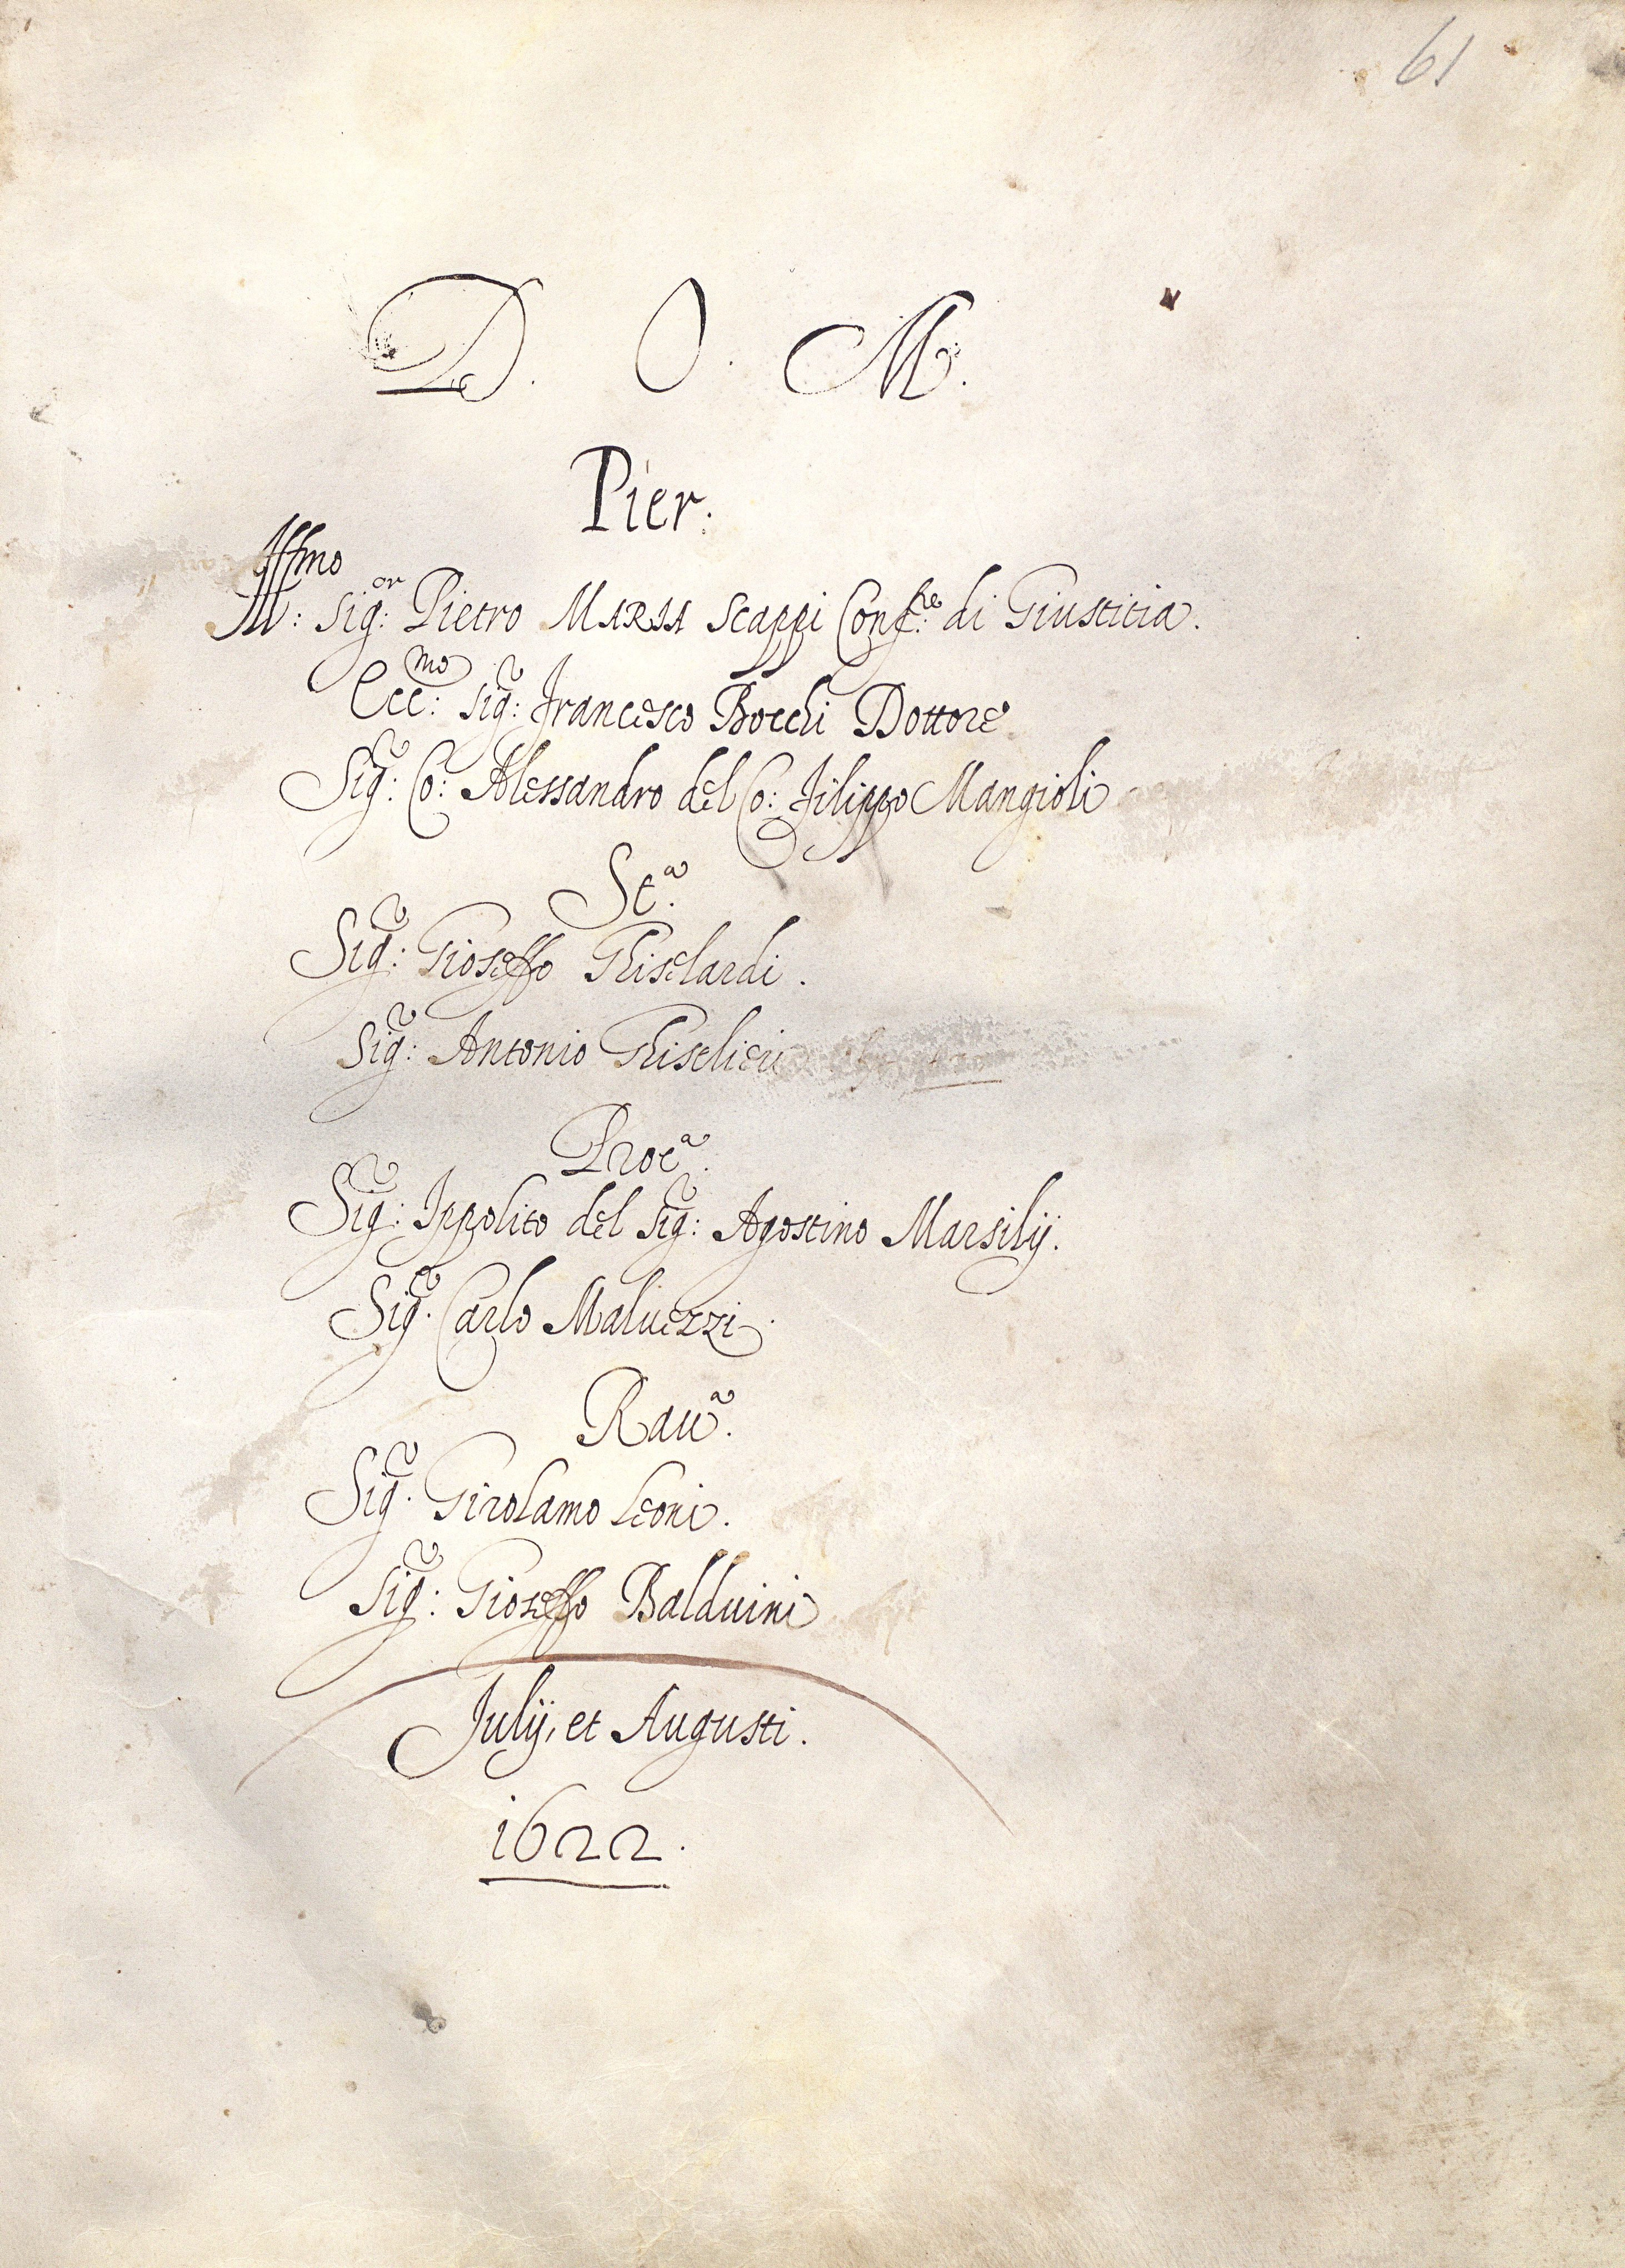 61
D. O. M.
Pier:
Ill:mo Sig:or Pietro MARIA Scappi Conf:re di Giustitia.
Ecc:mo Sig:r Francesco Bocchi Dottore
Sig:r Co: Alessandro del Co: Filippo Mangioli
St:a
Sig:r Gioseffo Ghiselardi.
Sig:r Antonio Ghiselieri
Proc:a
Sig:r Ippolito del Sig:r Agostino Marsilij.
Sig:r Carlo Maluezzi.
Rau:a
Sig:r Girolamo Leoni.
Sig:r Gioseffo Balduini
Julij, et Augusti.
1622.